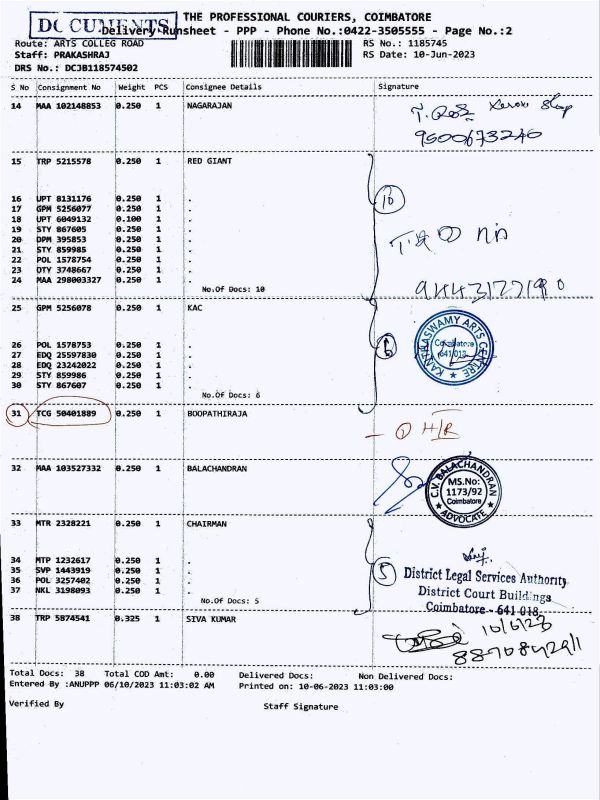 DOCUMENTS
THE PROFESSIONAL COURIERS, COIMBATORE
Delivery Runsheet - PPP - Phone No.:0422-3505555 - Page No.:2
Route: ARTS COLLEG ROAD
Staff: PRAKASHRAJ
DRS No.: DCJB118574502
RS No.: 1185745
RS Date: 10-Jun-2023
S No Consignment No Weight PCS Consignee Details Signature
14 MAA 102148853 0.250 1 NAGARAJAN
9500673240
15 TRP 5215578 0.250 1 RED GIANT
16 UPT 8131176 0.250 1 .
17 GPM 5256077 0.250 1 .
18 UPT 6049132 0.100 1 .
19 STY 867605 0.250 1 .
20 DPM 395853 0.250 1 .
21 STY 859985 0.250 1 .
22 POL 1578754 0.250 1 .
23 OTY 3748667 0.250 1 .
24 MAA 298003327 0.250 1 .
No.Of Docs: 10
10
25 GPM 5256078 0.250 1 KAC
26 POL 1578753 0.250 1 .
27 EDQ 25597830 0.250 1 .
28 EDQ 23242022 0.250 1 .
29 STY 859986 0.250 1 .
30 STY 867607 0.250 1 .
No.Of Docs: 6
6
KANTHASWAMY ARTS CENTRE
Coimbatore
641 018
31 TCG 50401889 0.250 1 BOOPATHIRAJA
32 MAA 103527332 0.250 1 BALACHANDRAN
C.V. BALACHANDRAN
MS.No:
1173/92
Coimbatore
ADVOCATE
33 MTR 2328221 0.250 1 CHAIRMAN
34 MTP 1232617 0.250 1 .
35 SVP 1443919 0.250 1 .
36 POL 3257402 0.250 1 .
37 NKL 3198093 0.250 1 .
No.Of Docs: 5
5
District Legal Services Authority
District Court Buildings
Coimbatore - 641 018
38 TRP 5874541 0.325 1 SIVA KUMAR
10/6/23
Total Docs: 38 Total COD Amt: 0.00 Delivered Docs: Non Delivered Docs:
Entered By :ANUPPP 06/10/2023 11:03:02 AM Printed on: 10-06-2023 11:03:00
Verified By Staff Signature